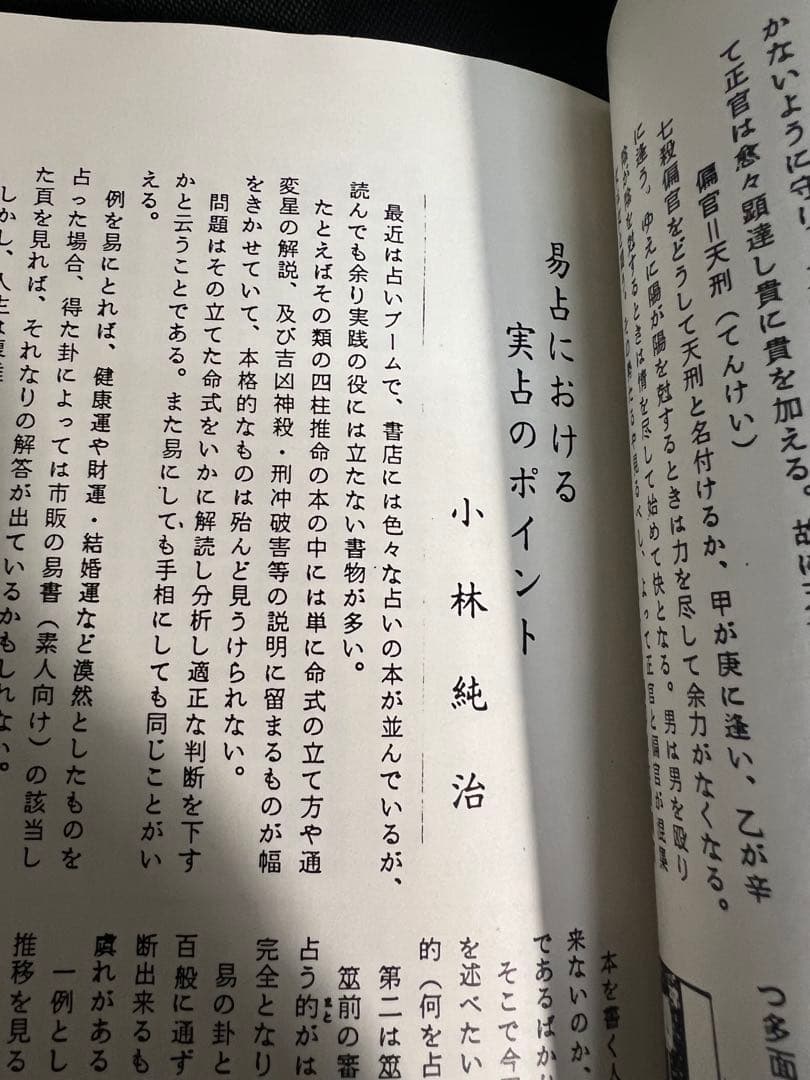 かないように守り
て正官は愈々顕達し貴に貴を加える。故に
偏官＝天刑（てんけい）
七殺偏官をどうして天刑と名付けるか、甲が庚に逢い、乙が辛
に逢う。ゆえに陽が陽を尅するときは力を尽して余力がなくなる。
するときは情を尽して始めて快となる。男は男を殴り
よって正官と偏官が
つ多面
易占における
実占のポイント
小林純治
最近は占いブームで、書店には色々な占いの本が並んでいるが、
読んでも余り実践の役には立たない書物が多い。
たとえばその類の四柱推命の本の中には単に命式の立て方や通
変星の解説、及び吉凶神殺・刑冲破害等の説明に留まるものが幅
をきかせていて、本格的なものは殆んど見うけられない。
問題はその立てた命式をいかに解読し分析し適正な判断を下す
かと云うことである。また易にしても手相にしても同じことがい
える。
例を易にとれば、健康運や財運・結婚運など漠然としたものを
占った場合、得た卦によっては市販の易書（素人向け）の該当し
た頁を見れば、それなりの解答が出ているかもしれない。
しかし、人生は複雑
本を書く人
来ないのか、
であるばかり
そこで今
を述べたい
的（何を占
第二は筮
筮前の審
占う的がは
完全となり
易の卦と
百般に通ず
断出来るも
虞れがある
一例とし
推移を見る